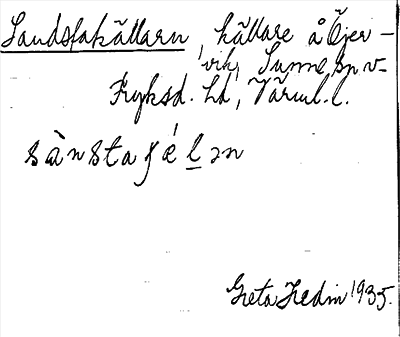 Sandstakällarn, källare å Öjer-
vik, Sunne sn v-
Fryksd. hd, Värml. l.
sànstaʃǽlən
Greta Hedin 1935.